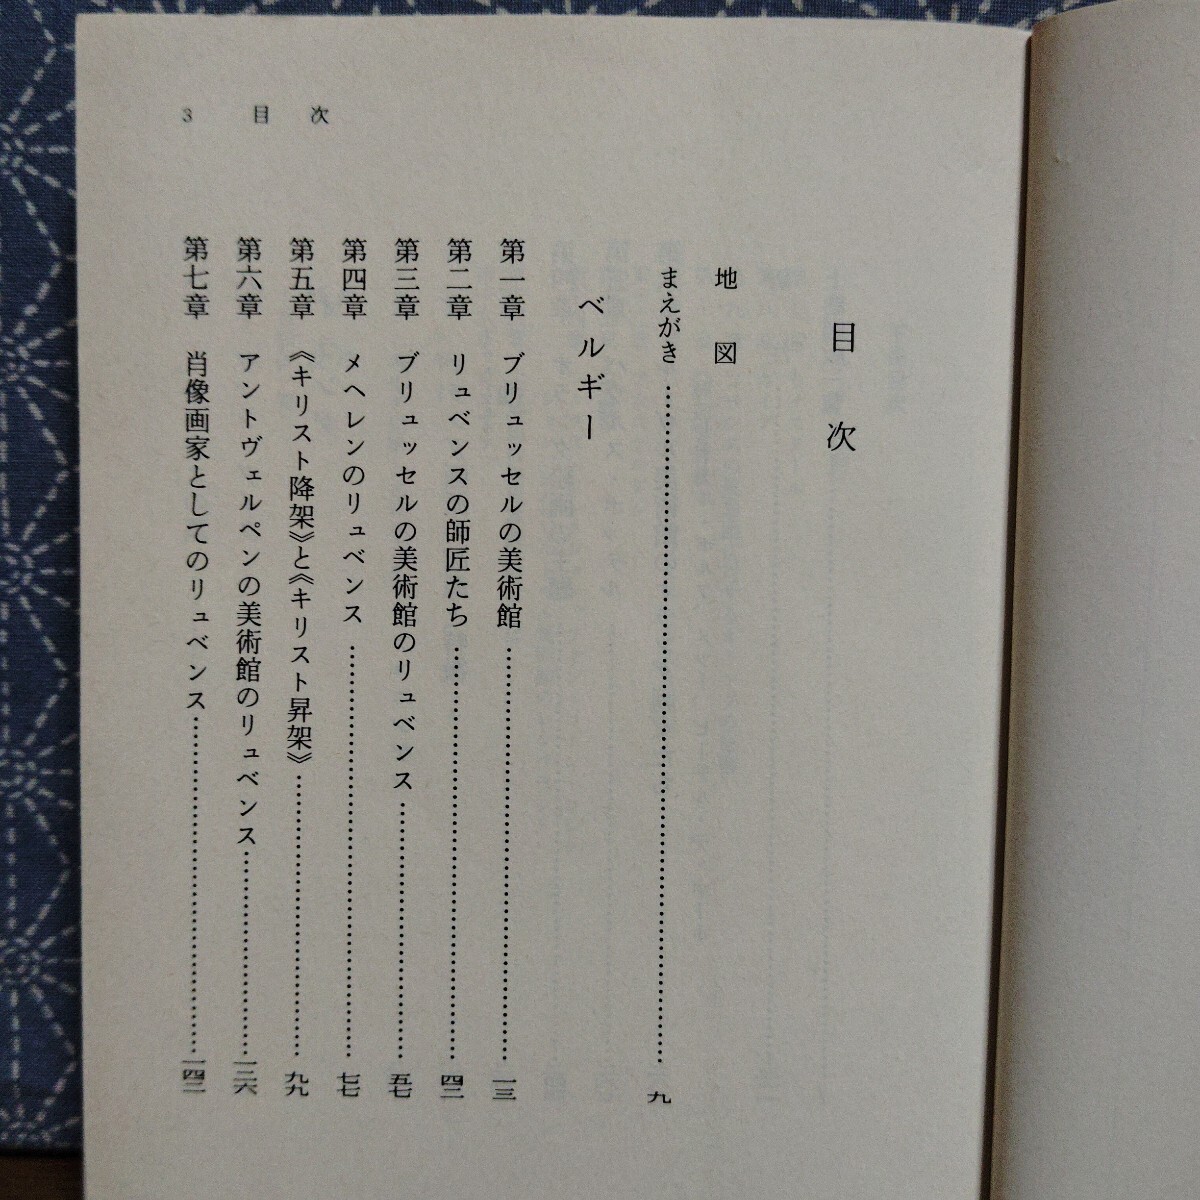 3 目次
目次
地図
まえがき……九
ベルギー
第一章 ブリュッセルの美術館……一三
第二章 リュベンスの師匠たち……四二
第三章 ブリュッセルの美術館のリュベンス……五七
第四章 メヘレンのリュベンス……七七
第五章 《キリスト降架》と《キリスト昇架》……九九
第六章 アントヴェルペンの美術館のリュベンス……一二六
第七章 肖像画家としてのリュベンス……一四二